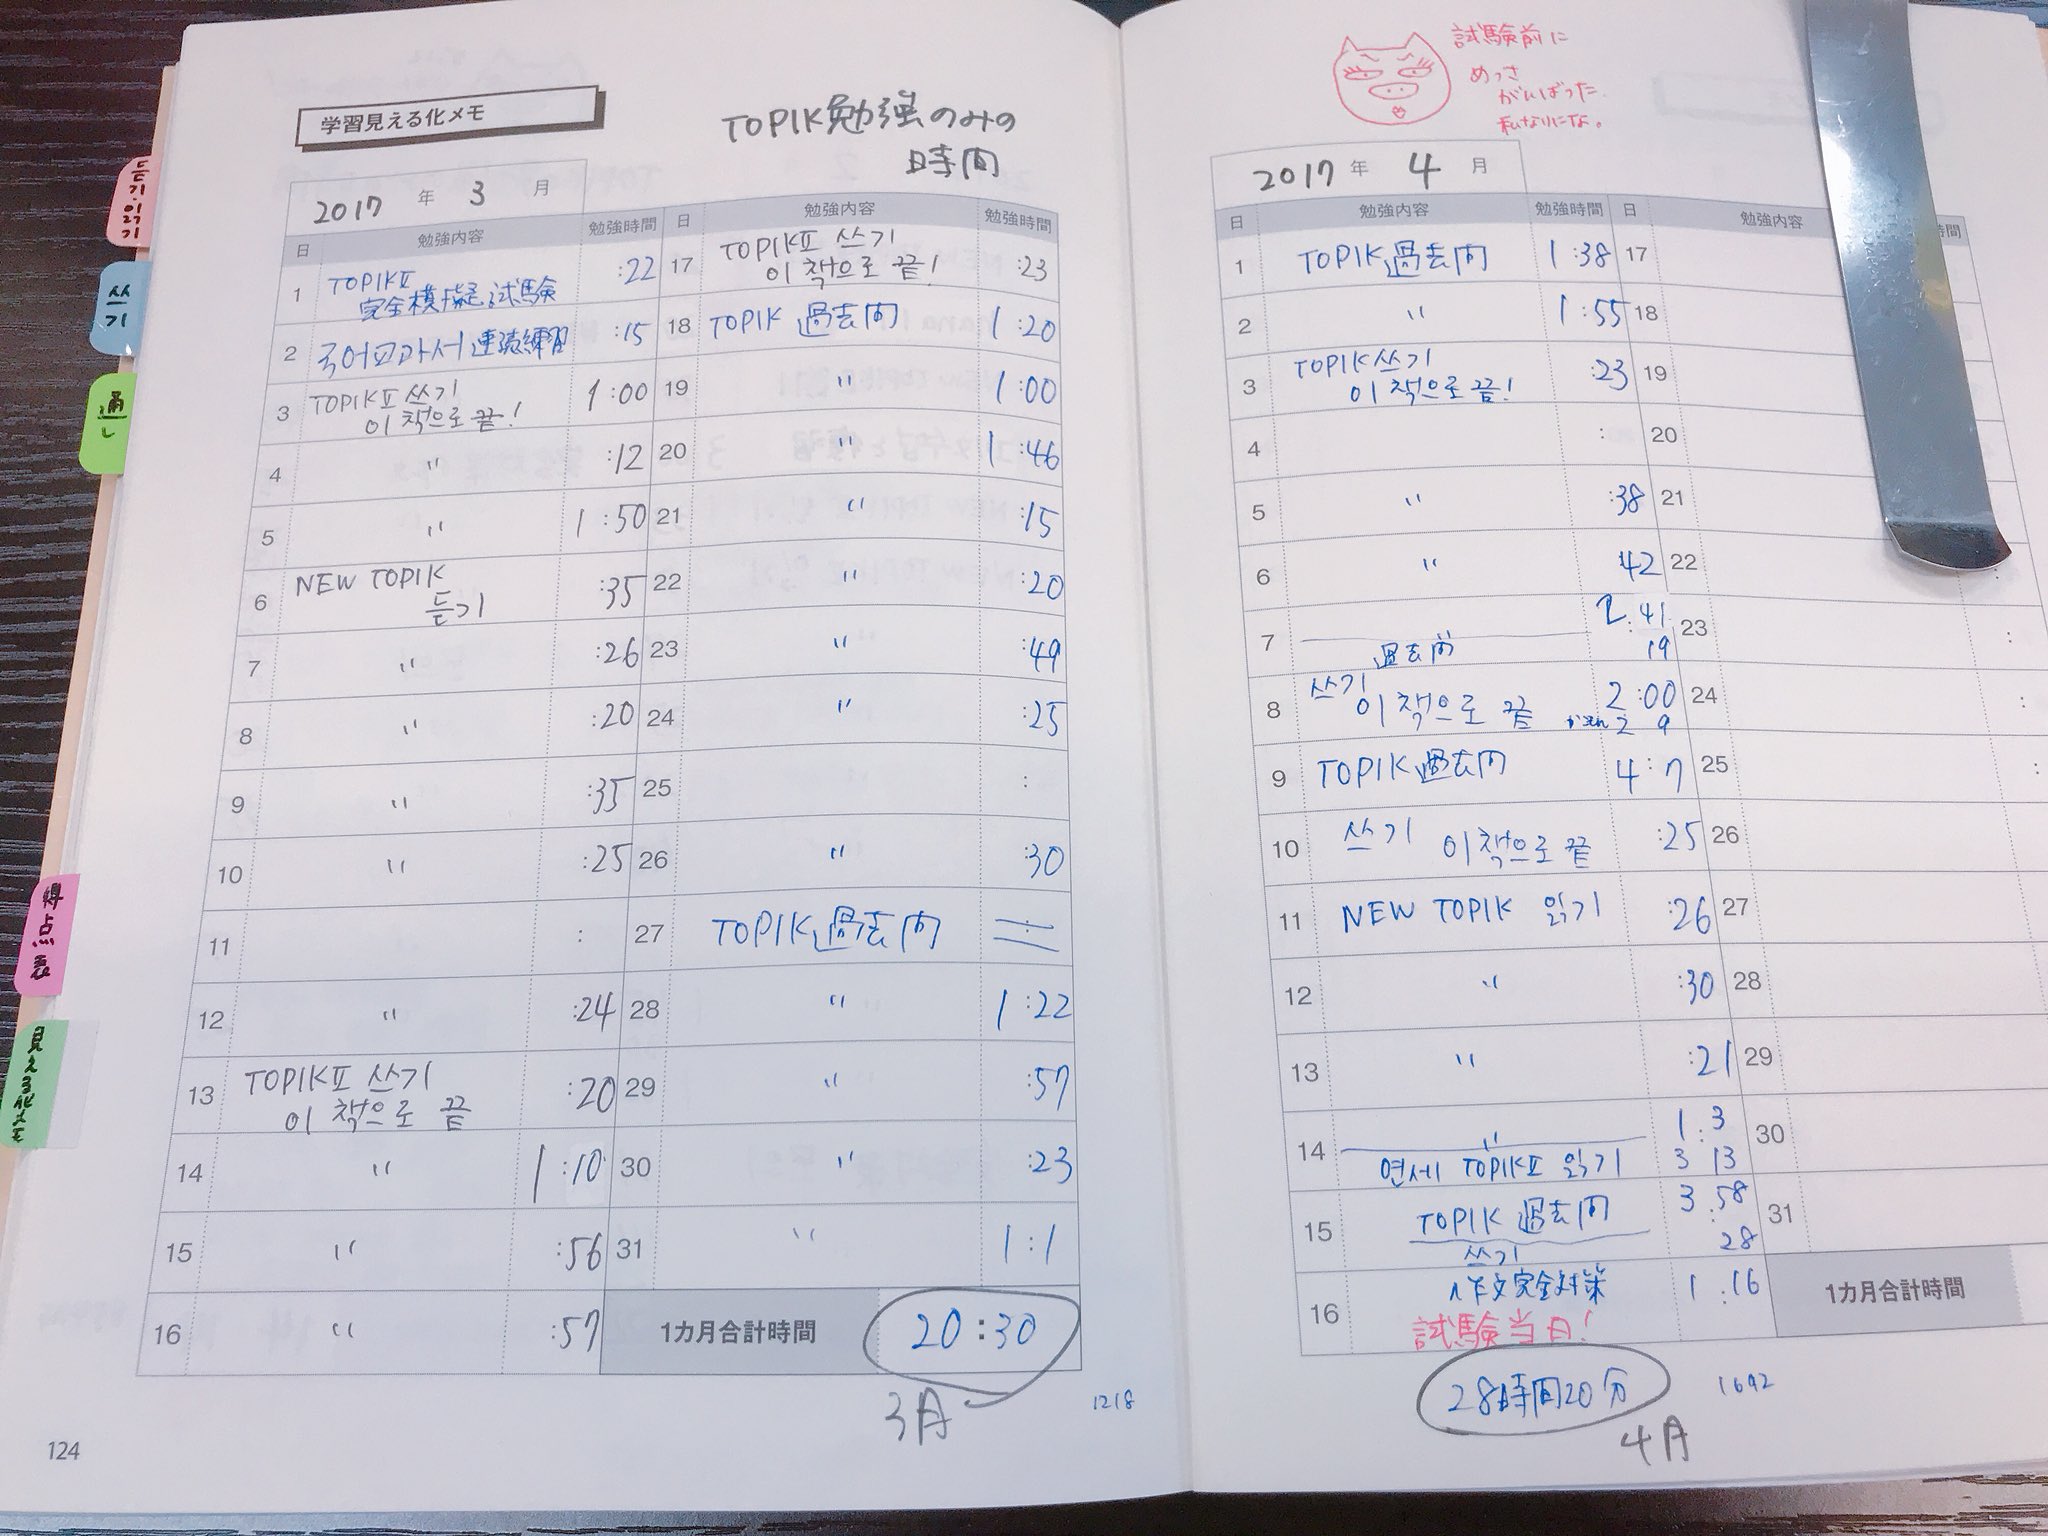 学習見える化メモ
TOPIK勉強のみの
時間
2017 年 3 月
日 勉強内容 勉強時間 日 勉強内容 勉強時間
1 TOPIKⅡ
完全模擬試験 :22
2 국어교과서 連続練習 :15
3 TOPIKⅡ 쓰기
이 책으로 끝! 1:00
4 〃 :12
5 〃 1:50
6 NEW TOPIK
듣기 :35
7 〃 :26
8 〃 :20
9 〃 :35
10 〃 :25
11 :
12 〃 :24
13 TOPIKⅡ 쓰기
이 책으로 끝 :20
14 〃 1:10
15 〃 :56
16 〃 :57
17 TOPIKⅡ 쓰기
이 책으로 끝! :23
18 TOPIK 過去問 1:20
19 〃 1:00
20 〃 1:46
21 〃 :15
22 〃 :20
23 〃 :49
24 〃 :25
25 :
26 〃 :30
27 TOPIK過去問 :
28 〃 1:22
29 〃 :57
30 〃 :23
31 〃 1:1
1カ月合計時間 20:30
3月
1218
124
試験前に
めっさ
がんばった
私なりにな。
2017 年 4 月
日 勉強内容 勉強時間 日 勉強内容 時間
1 TOPIK過去問 1:38 17
2 〃 1:55 18
3 TOPIK쓰기
이 책으로 끝! :23 19
4 : 20
5 〃 :38 21
6 〃 42 22
7 〃 2:41 23
過去問 19
8 쓰기
이 책으로 끝 2:00 24
2 9
9 TOPIK過去問 4:7 25
10 쓰기 이 책으로 끝 :25 26
11 NEW TOPIK 읽기 :26 27
12 〃 :30 28
13 〃 :21 29
14 〃 1:3 30
연세 TOPIKⅡ 읽기 3 13
15 TOPIK 過去問 3:58 31
쓰기 28
16 作文完全対策 1:16
試験当日!
1カ月合計時間
28時間20分
1692
4月
듣기·읽기
쓰기
通し
得点表
見える化メモ